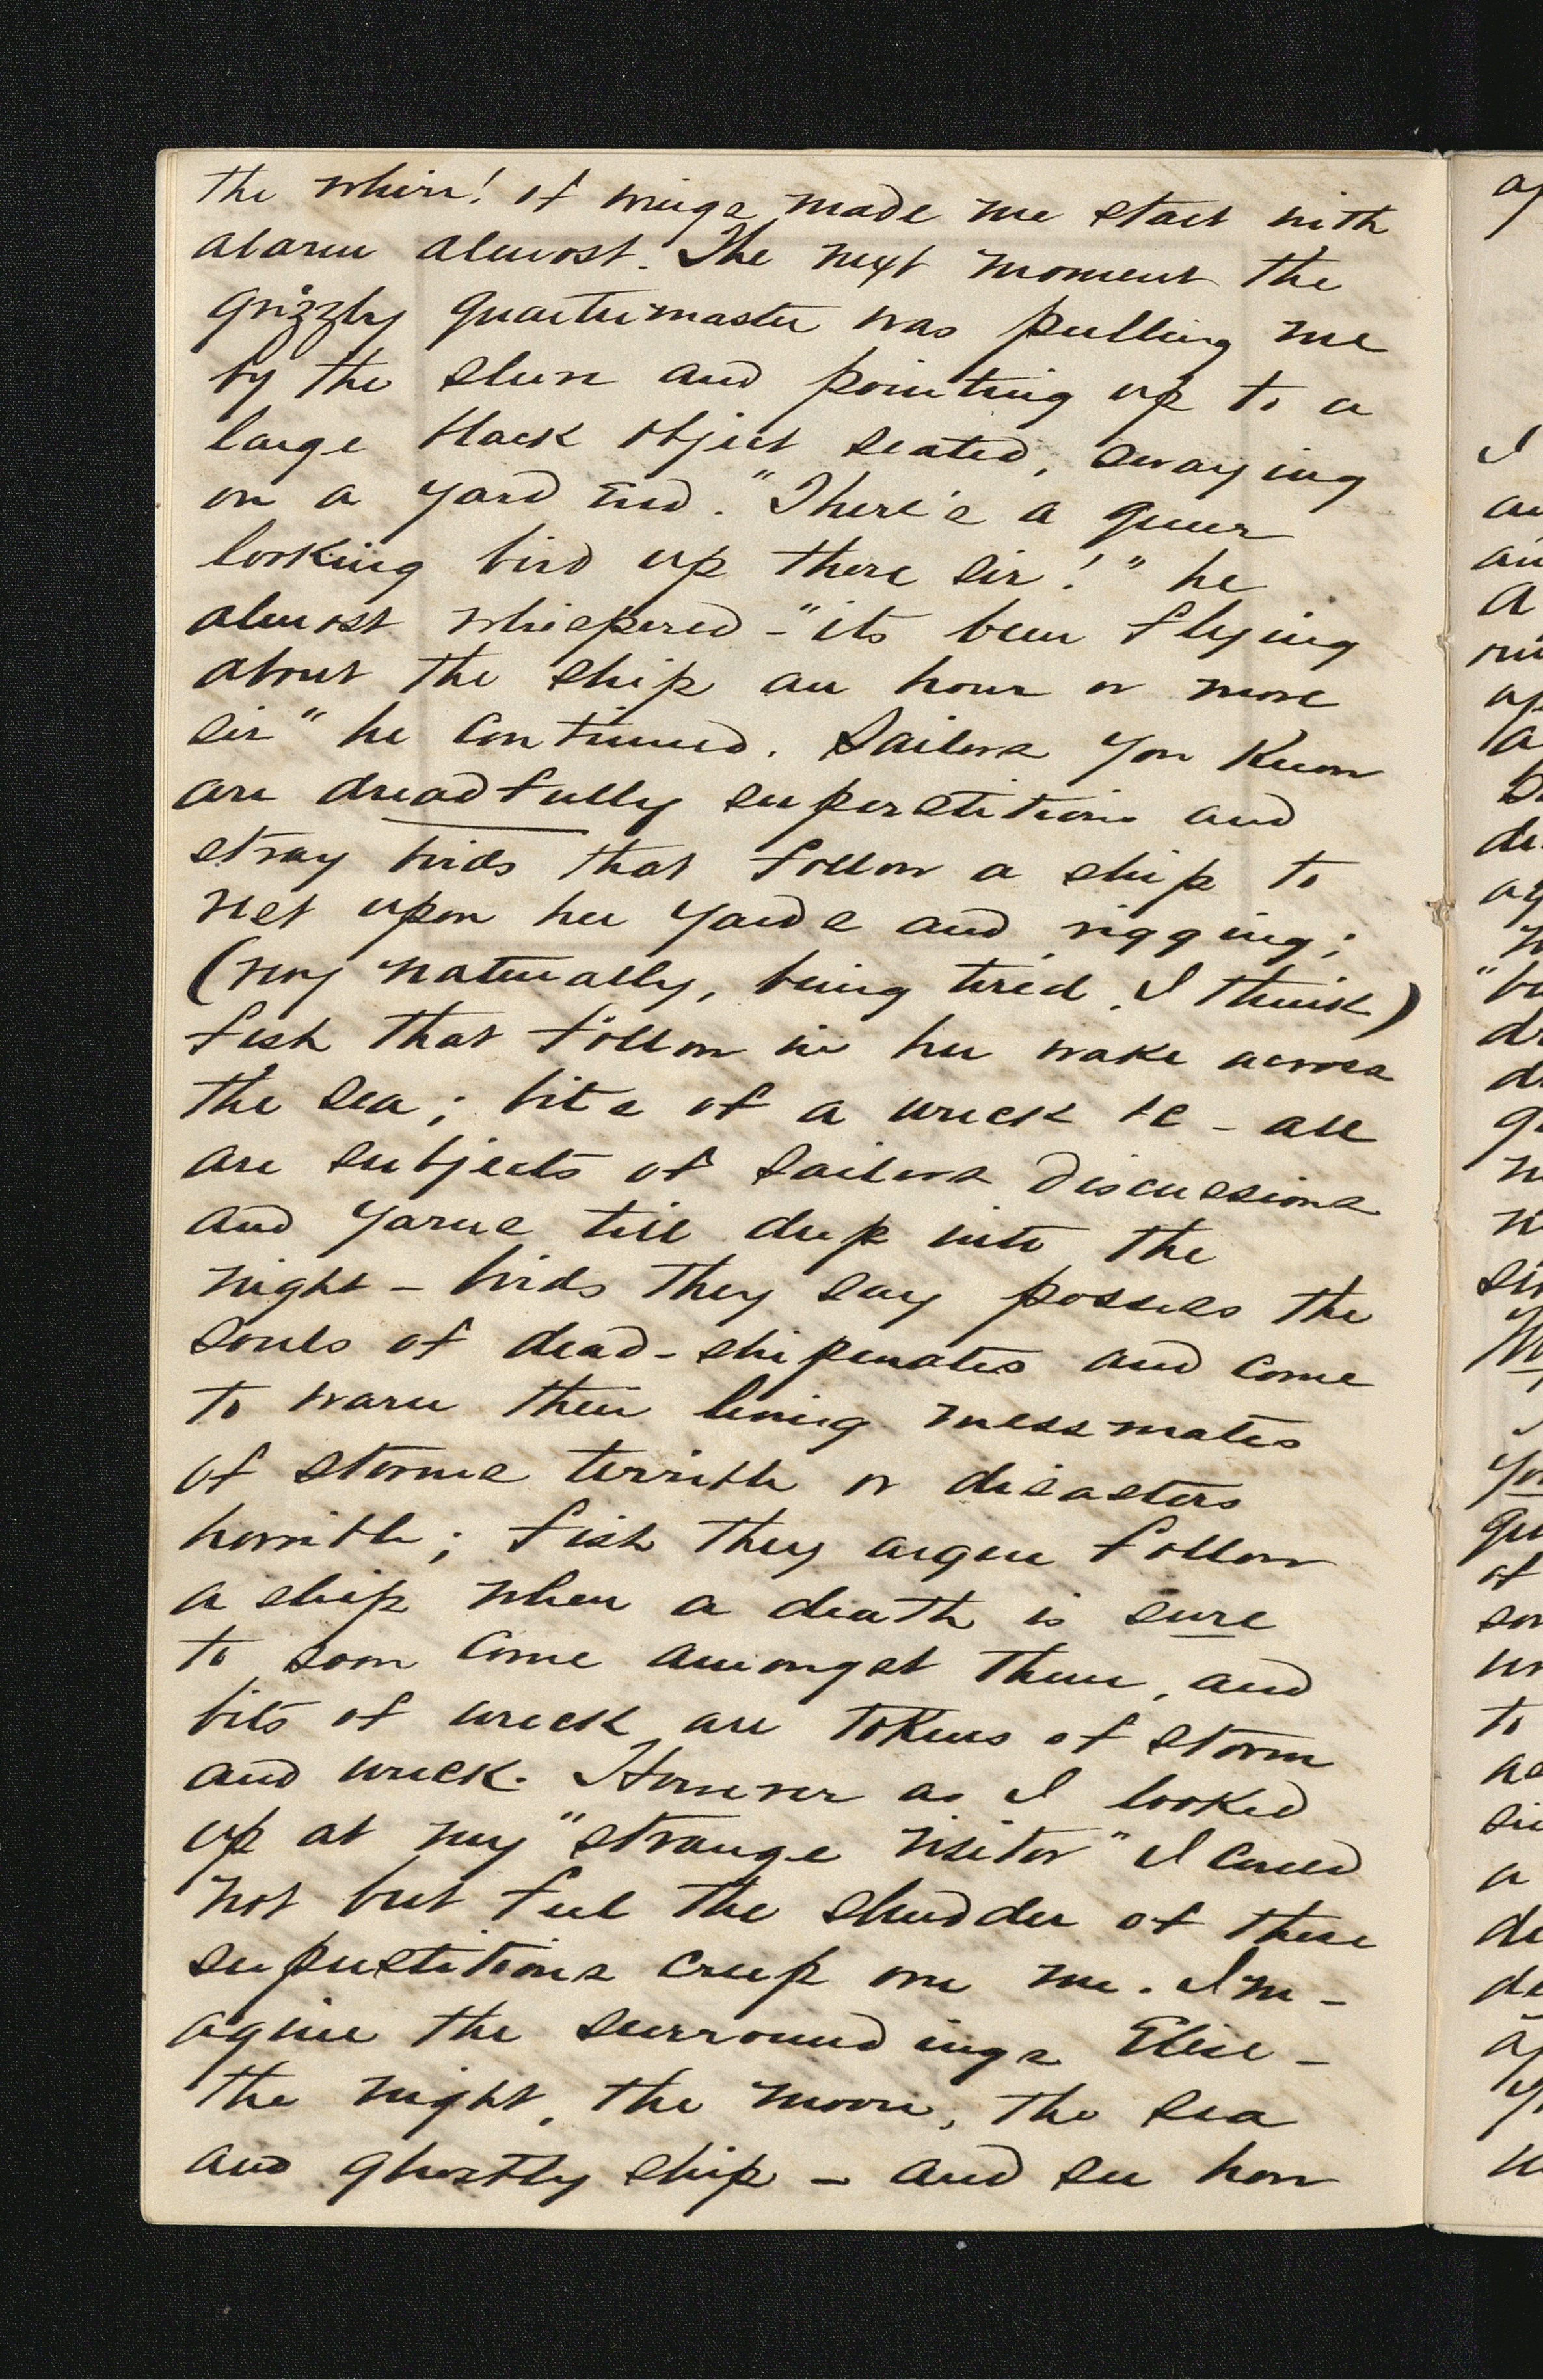 the whirr! of wings made me start with
alarm almost. The next moment the
grizzly quartermaster was pulling me
by the sleeve and pointing up to a
large black object seated, swaying
on a yard end. "There's a queer
looking bird up there sir!" he
almost whispered - "its been flying
about the ship an hour or more
sir" he continued. Sailors you know
are dreadfully superstitious and
stray birds that follow a ship to
rest upon her yards and rigging;
(very naturally, being tired, I think)
fish that follow in her wake across
the sea; bits of a wreck &c - all
are subjects of sailors discussions
and yarns till deep into the
night - birds they say possess the
souls of dead-shipmates and come
to warn their living messmates
of storms terrible or disasters
horrible; fish they argue follow
a ship when a death is sure
to soon come amongst them, and
bits of wreck are tokens of storm
and wreck. However as I looked
up at my "strange visitor" I could
not but feel the shudder of these
superstitions creep over me. Im-
agine the surroundings Elise -
the night, the moon, the sea
and ghostly ship - and see how